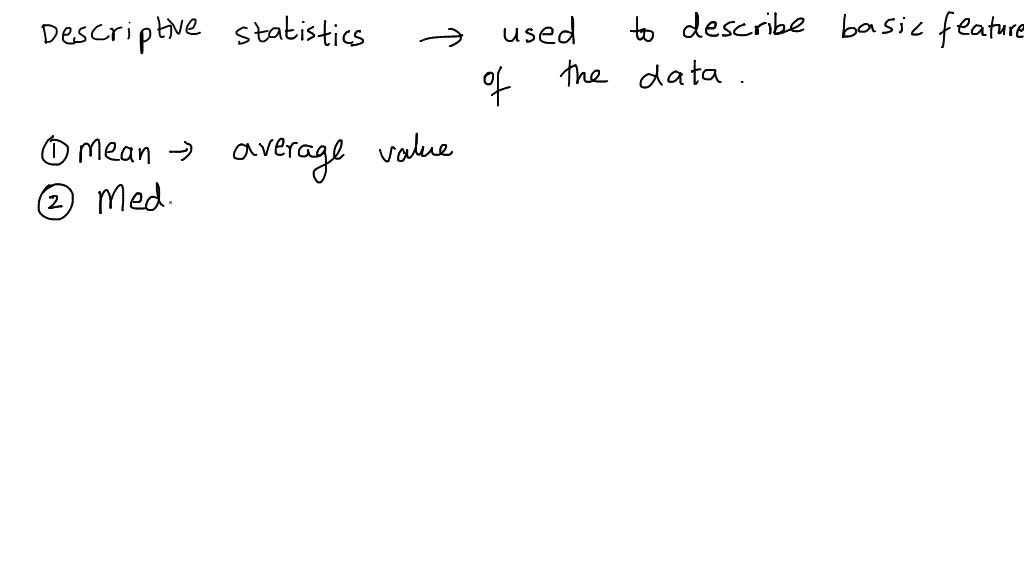 Descriptive statistics → used to describe basic feature
of the data.
① Mean → average value
② Med.